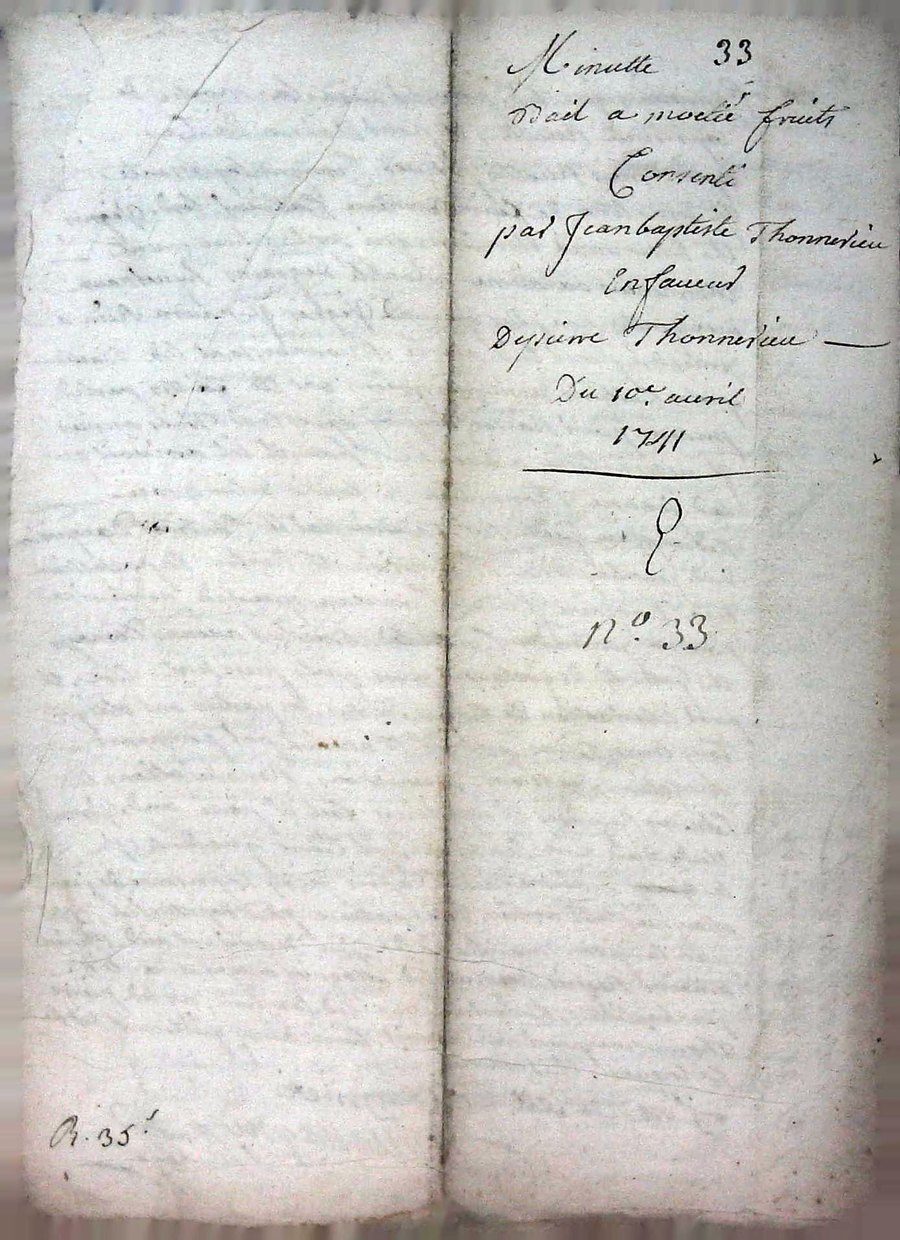 Minutte 33
Bail a moetié fruits
Consenti
par Jeanbaptiste Thonnerieu
Enfaueur
Depierre Thonnerieu
Du 10e. auril
1741
n.o 33
R. 35s